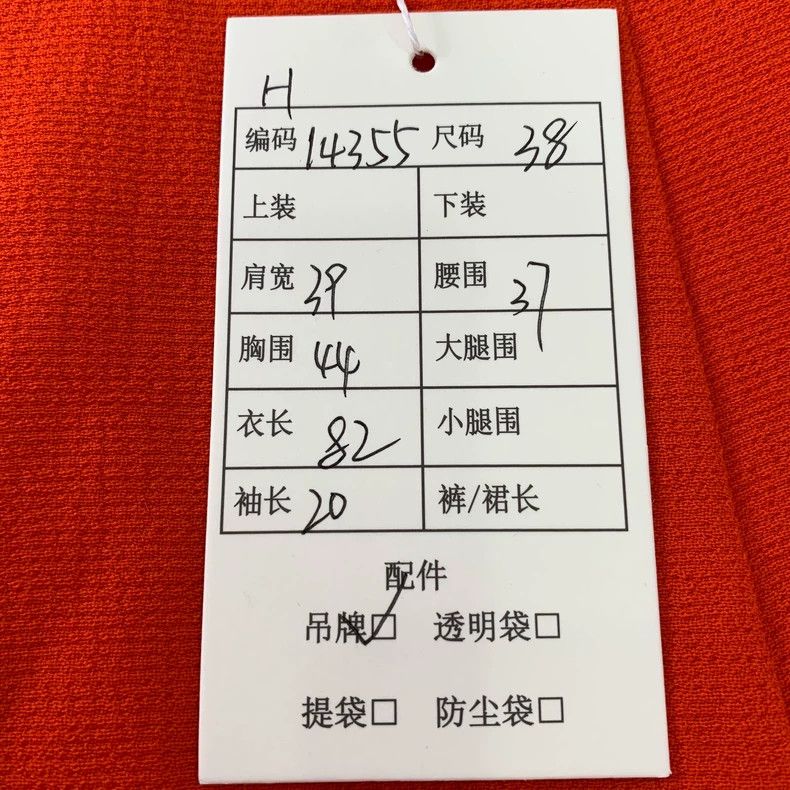 H
编码 14355 尺码 38
上装 下装
肩宽 39 腰围 37
胸围 44 大腿围
衣长 82 小腿围
袖长 20 裤/裙长
配件
吊牌☑ 透明袋□
提袋□ 防尘袋□